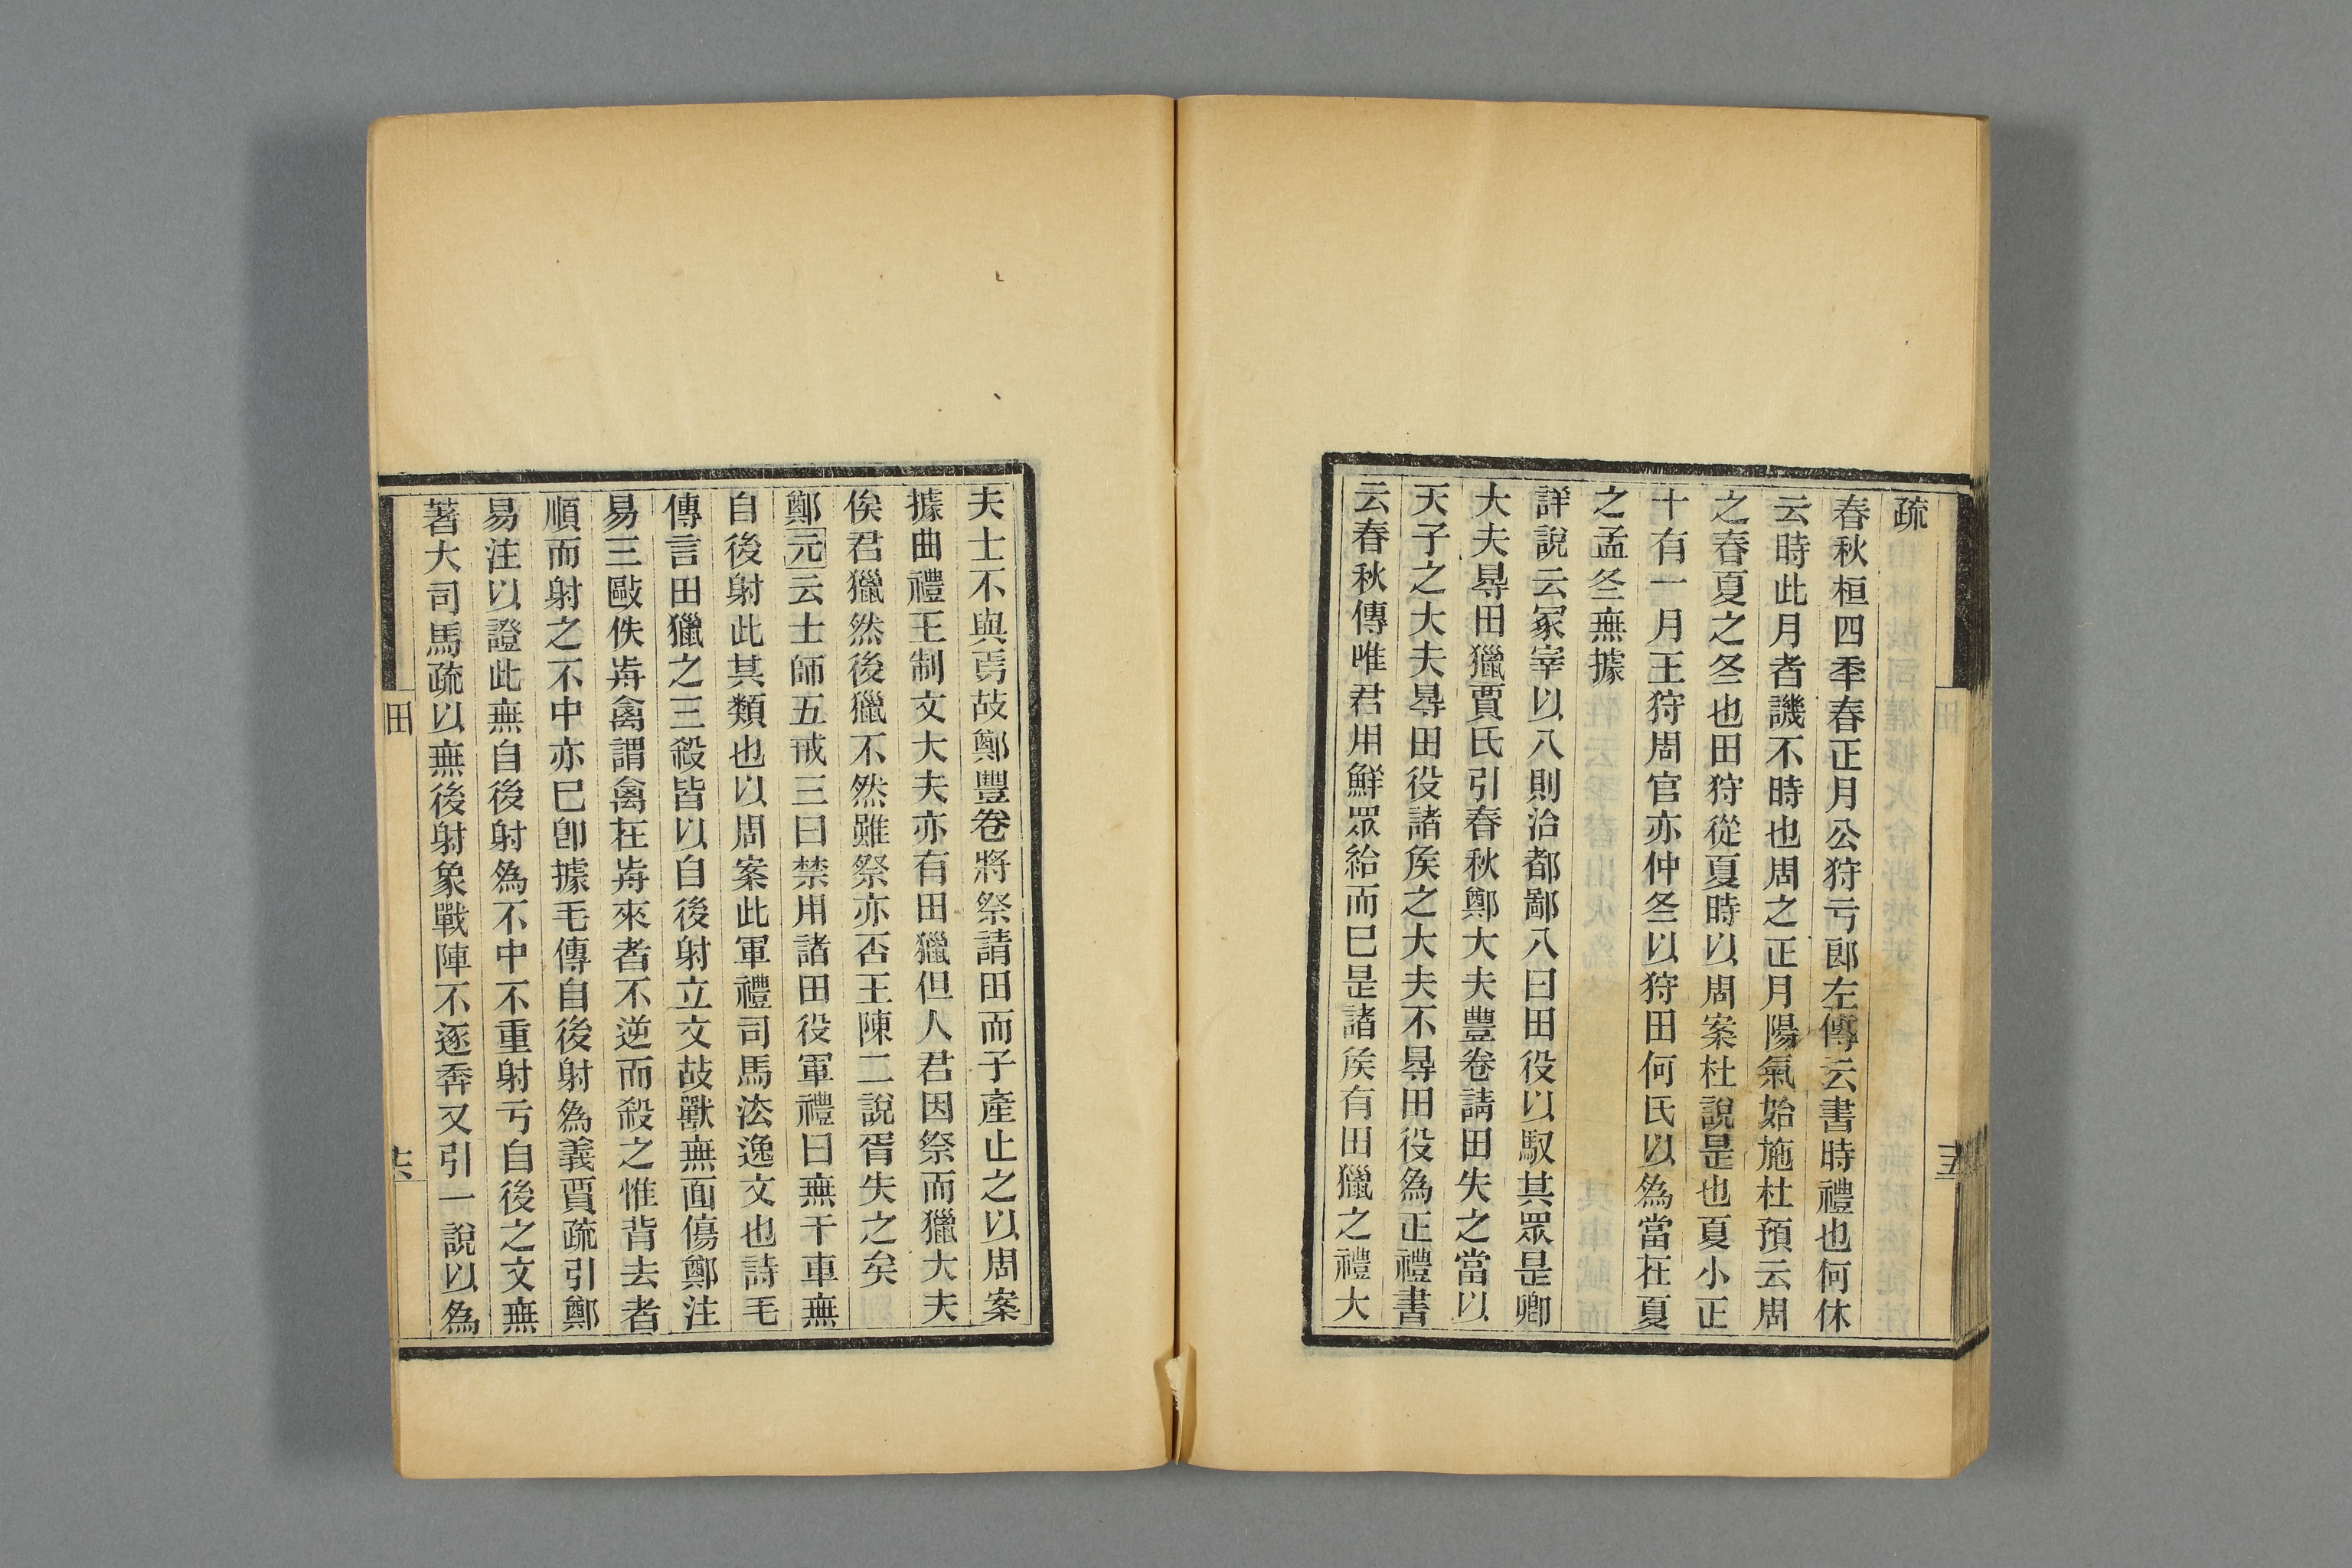 疏
春秋桓四年春正月公狩亏郎左傳云書時禮也何休
云時此月者譏不時也周之正月陽氣始施杜預云周
之春夏之冬也田狩從夏時以周案杜說是也夏小正
十有一月王狩周官亦仲冬以狩田何氏以為當在夏
之孟冬無據
詳說云冢宰以八則治都鄙八曰田役以馭其眾是卿
大夫㝵田獵賈氏引春秋鄭大夫豐卷請田失之當以
天子之大夫㝵田役諸矦之大夫不㝵田役為正禮書
云春秋傳唯君用鮮眾給而巳是諸矦有田獵之禮大
十五
夫士不與焉故鄭豐卷將祭請田而子產止之以周案
據曲禮王制文大夫亦有田獵但人君因祭而獵大夫
俟君獵然後獵不然雖祭亦否王陳二說胥失之矣
鄭元云士師五戒三曰禁用諸田役軍禮曰無干車無
自後射此其類也以周案此軍禮司馬法逸文也詩毛
傳言田獵之三殺皆以自後射立文故獸無面傷鄭注
易三敺佚歬禽謂禽在歬來者不逆而殺之惟背去者
順而射之不中亦巳卽據毛傳自後射為義賈疏引鄭
易注以證此無自後射為不中不重射亏自後之文無
著大司馬疏以無後射象戰陣不逐奔又引一說以為
田
十六